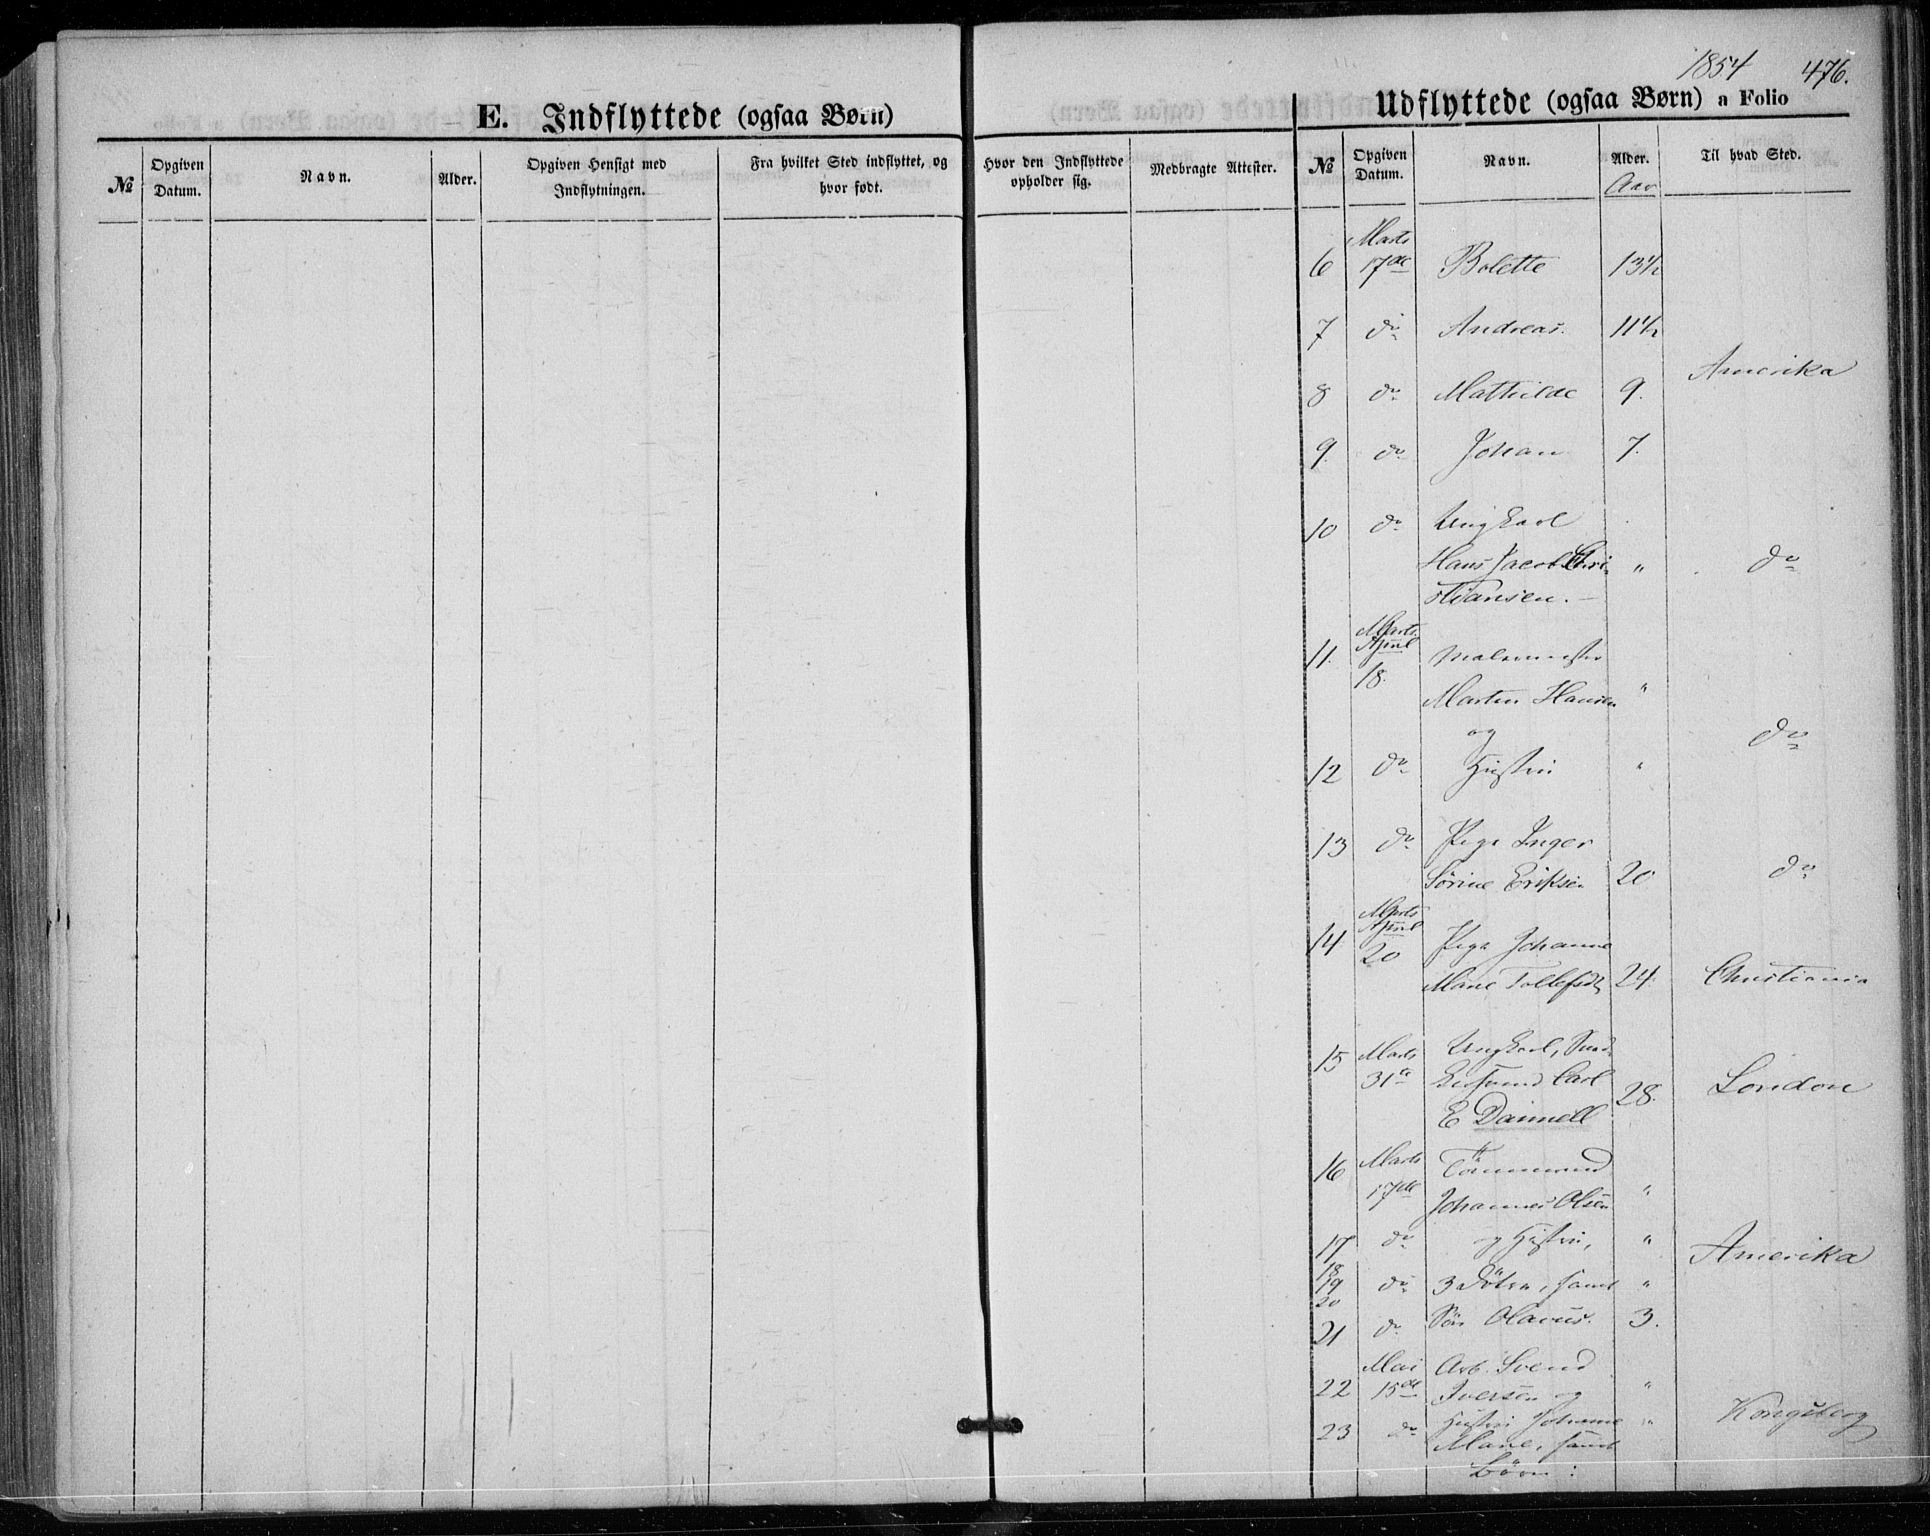 1854 476.
E. Indflyttede (ogsaa Børn)
Udflyttede (ogsaa Børn) a Folio
№ Opgiven Datum. Navn. Alder. Opgiven Hensigt med Indflytningen. Fra hvilket Sted indflyttet, og hvor født. Hvor den Indflyttede opholder sig. Medbragte Attester.
№ Opgiven Datum. Navn. Alder. Til hvad Sted.
Aar
Marts
6 17de Bolette 13½
7 do Andreas. 11½
Amerika
8 do Mathilde 9.
9. do Johan 7.
10 do Ungkarl
Hans Jacob Chri- " do
stiansen.
Marts
April
11. 18. Malermester
Marten Hansen "
og
do
12 do Hustru "
13 do Pige Inger
Sörine Eriksen 20 do
Marts
April
14 20 Pige Johanne
Marie Tollefsdt 24. Christiania
15 Marts Ungkarl,
31te Carl 28. London
E Dannell
16 Marts Tömmermand
17de Johannes Olsen "
17 do og Hustru, "
Amerika
18
19 do 3 Dötre, samt "
20
21 do Sön Olavus. 3.
Mai Arb. Svend
22 15de Iversen og "
23 do Hustru Johanne " Kongsberg
Marie, samt
Börn: